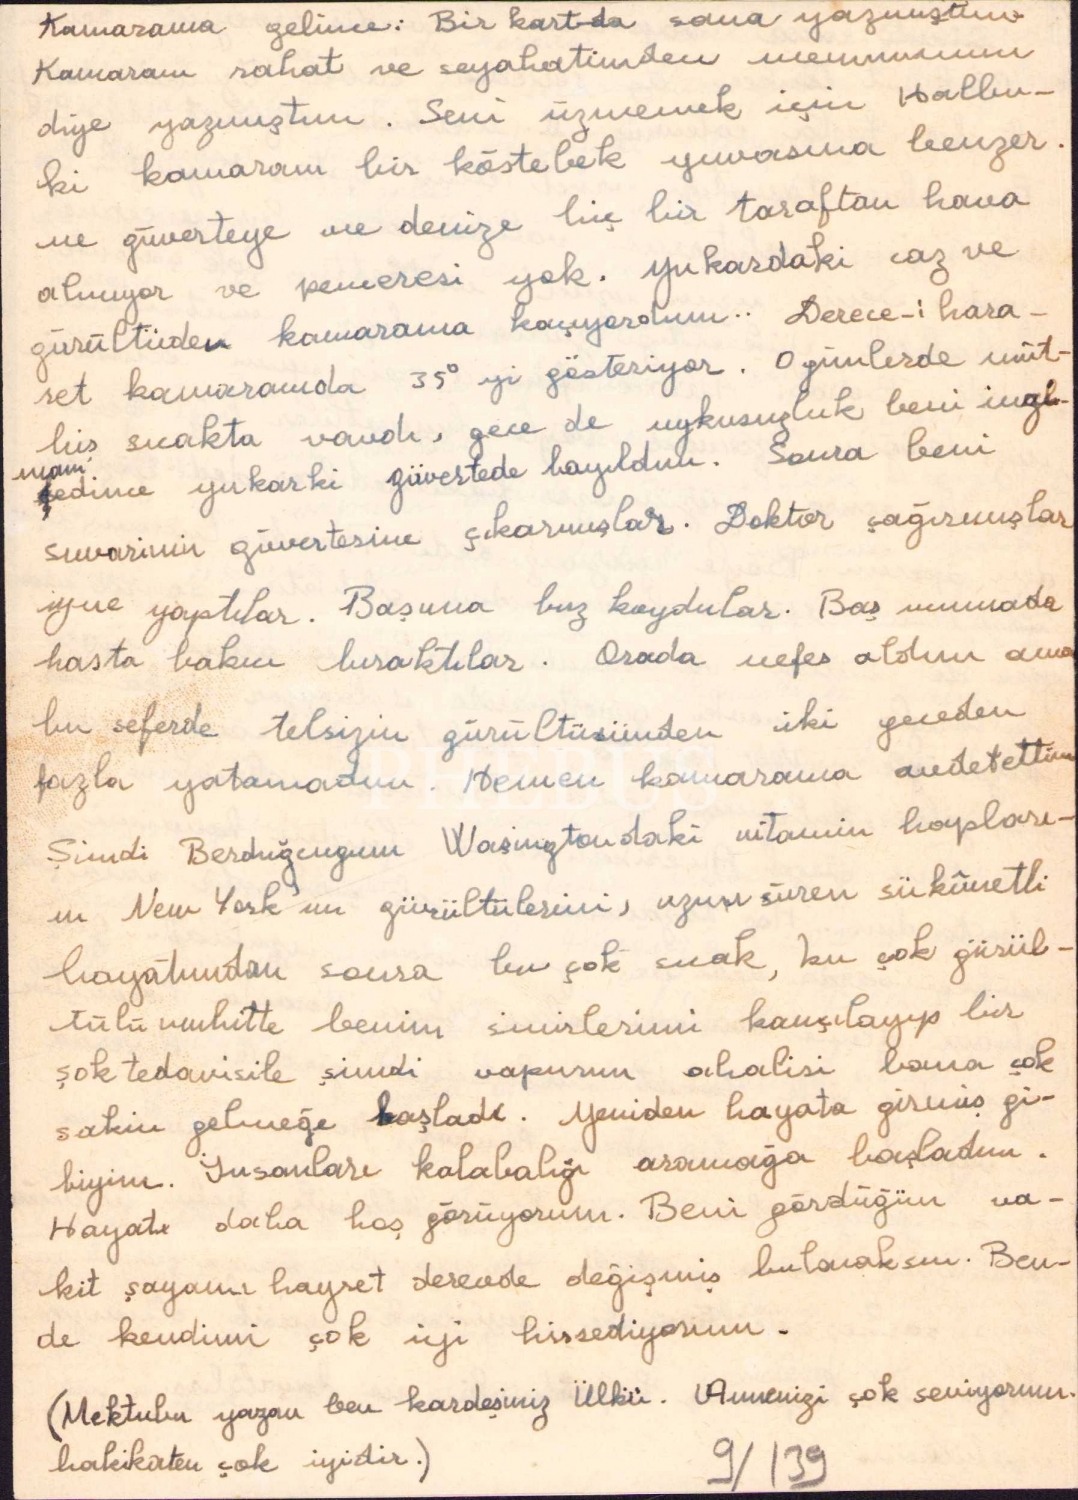 Kamarama gelince: Bir kartda sana yazmıştım
Kamaram rahat ve seyahatimden memnunum
diye yazmıştım. Seni üzmemek için Halbu-
ki kamaram bir köstebek yuvasına benzer.
ne güverteye ne denize hiç bir taraftan hava
almıyor ve penceresi yok. Yukardaki caz ve
gürültüden kamarama kaçıyordum.. Derece-i hara-
ret kamaramda 35° yi gösteriyor. O günlerde müt-
hiş sıcakta vardı, gece de uykusuzluk beni
yukarki güvertede bayıldım. Sonra beni
suvarinin güvertesine çıkarmışlar. Doktor çağırmışlar
iğne yaptılar. Başıma buz koydular. Baş ucumada
hasta bakıcı bıraktılar. Orada nefes aldım ama
bu seferde telsizin gürültüsünden iki geceden
fazla yatamadım. Hemen kamarama avdet ettim
Şimdi Berduğcugum Waşingtondaki vitamin hapları-
nı New York'un gürültülerini, uzun süren sükûnetli
hayâtından sonra bu çok sıcak, bu çok gürül-
tülü muhitte benim sinirlerimi karşılayıp bir
şok tedavisile şimdi vapurun ahalisi bana çok
sakin gelmeğe başladı. Yeniden hayata girmiş gi-
biyim. İnsanları kalabalığı aramağa başladım.
Hayatı daha hoş görüyorum. Beni gördüğün va-
kit şayanı hayret derecede değişmiş bulacaksın. Ben-
de kendimi çok iyi hissediyorum.
(Mektubu yazan ben kardeşiniz Ülkü. Annenizi çok seviyorum.
hakikaten çok iyidir.)
9/139
PHEBUS